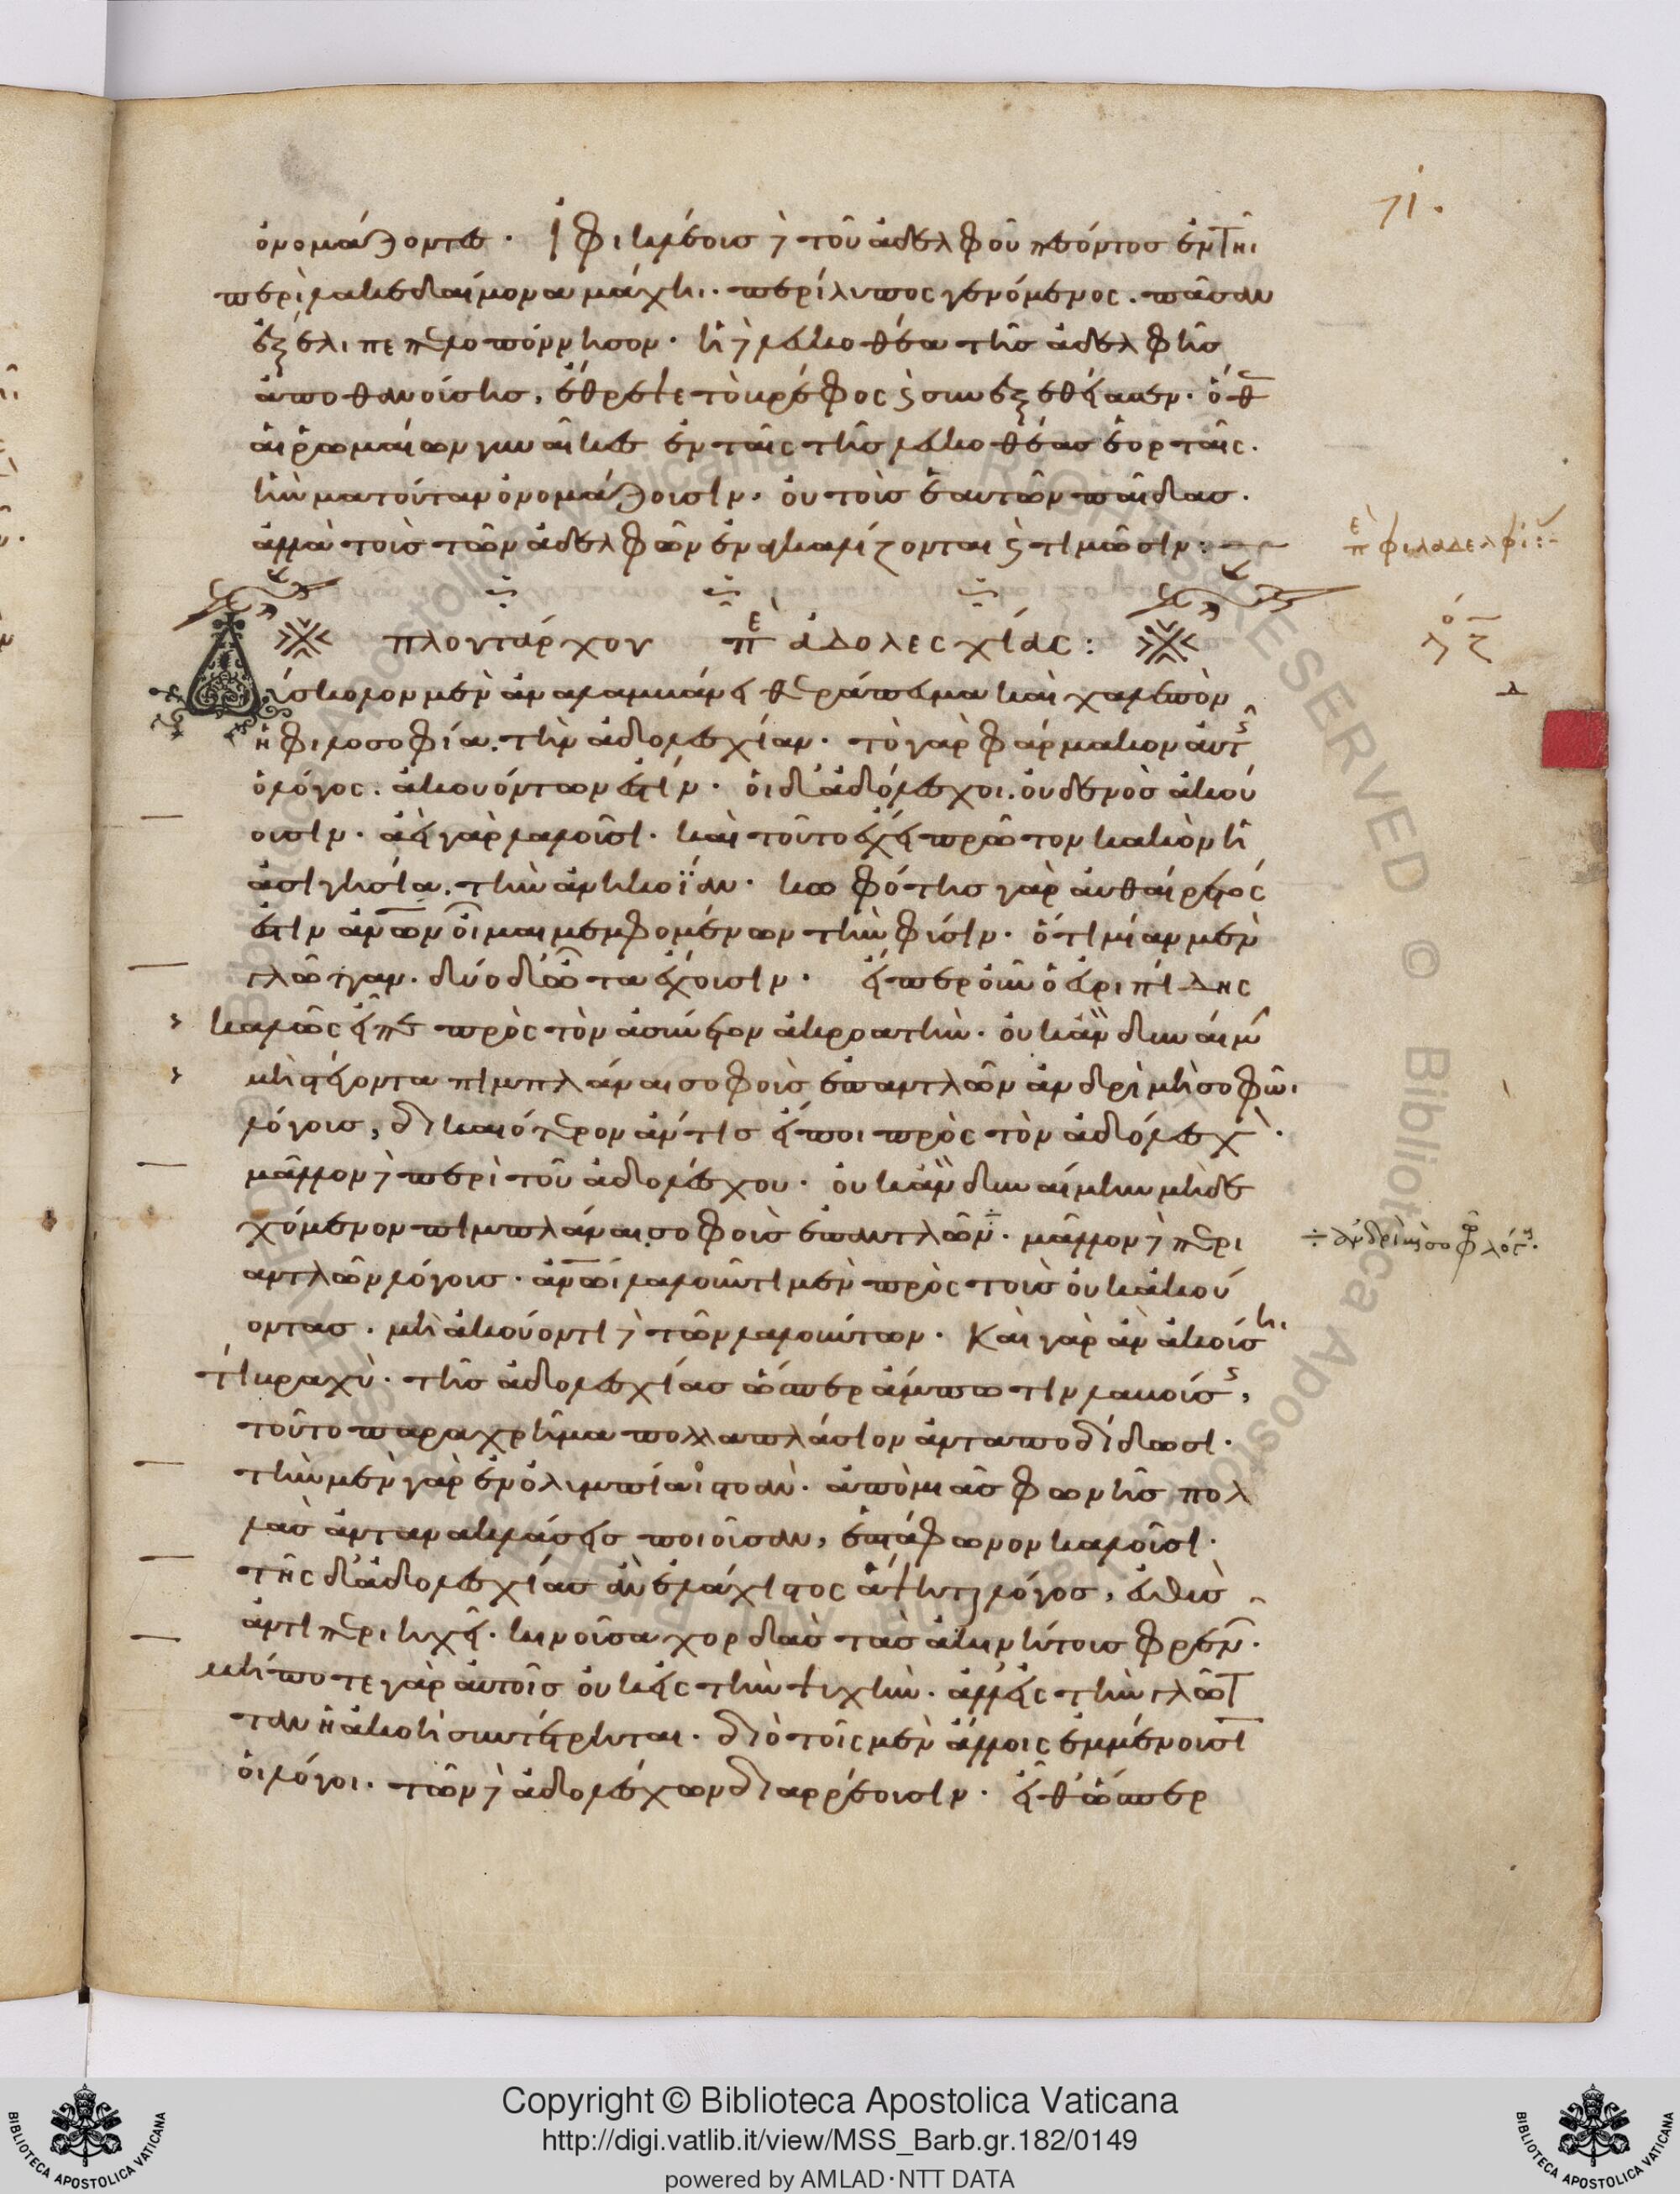 71.
ὀνομάζοντες. Ἰφικλέους δὲ τοῦ ἀδελφοῦ πεσόντος ἐν τῆι
περὶ λακεδαίμονα μάχηι. περίλυπος γενόμενος. πᾶσαν
ἐξέλιπε πελοπόννησον. ἡ δὲ λευκοθέα τῆς ἀδελφῆς
ἀποθανούσης, ἔθρεψε τὸ βρέφος καὶ συνεξεθείασεν. ὅθεν
αἱ ῥωμαίων γυναῖκες ἐν ταῖς τῆς λευκοθέας ἑορταῖς.
ἣν ματοῦταν ὀνομάζουσιν. οὐ τοὺς ἑαυτῶν παῖδας.
ἀλλὰ τοὺς τῶν ἀδελφῶν ἐναγκαλίζονται καὶ τιμῶσιν:
πε φιλαδελφί:
πλουτάρχου πε ἀδολεσχίας:
Δύσκολον μὲν ἀναλαμβάνει θεράπευμα καὶ χαλεπὸν
ἡ φιλοσοφία. τὴν ἀδολεσχίαν. τὸ γὰρ φάρμακον αὐτῆς
ὁ λόγος. ἀκουόντων ἐστίν. οἱ δ' ἀδόλεσχοι. οὐδενὸς ἀκού
ουσιν. ἀεὶ γὰρ λαλοῦσι. καὶ τοῦτο ἔχει πρῶτον κακὸν ἡ
ἀσιγησία. τὴν ἀνηκοΐαν. κωφότης γὰρ αὐθαίρετός
ἐστιν ἀνθρώπων οἶμαι μεμφομένων τὴν φύσιν. ὅτι μίαν μὲν
γλῶτταν. δύο δ' ὦτα ἔχουσιν. εἴπερ οὖν ὁ εὐριπίδης
καλῶς εἶπε πρὸς τὸν ἀσύνετον ἀκροατήν. οὐκ ἂν δυναίμην
μὴ στέγοντα πιμπλάναι σοφοὺς ἐπαντλῶν ἀνδρὶ μὴ σοφῶι
λόγους, δικαιότερον ἄν τις εἴποι πρὸς τὸν ἀδόλεσχον.
μᾶλλον δὲ περὶ τοῦ ἀδολέσχου. οὐκ ἂν δυναίμην μὴ δε
χόμενον πιμπλάναι. σοφοὺς ἐπαντλῶν. μᾶλλον δὲ περι
÷ ἀνδρὶ μὴ σοφῶ λόγους.
αντλῶν λόγους. ἀνθρώπωι λαλοῦντι μὲν πρὸς τοὺς οὐκ ἀκού
οντας. μὴ ἀκούοντι δὲ τῶν λαλούντων. Καὶ γὰρ ἂν ἀκούσηι
τι βραχὺ. τῆς ἀδολεσχίας ὥσπερ ἄμπωτιν λαβούσης,
τοῦτο παραχρῆμα πολλαπλάσιον ἀνταποδίδωσι.
τὴν μὲν γὰρ ἐν ὀλυμπίαι στοὰν. ἀπὸ μιᾶς φωνῆς πολ
λὰς ἀντανακλάσεις ποιοῦσαν, ἑπτάφωνον καλοῦσι.
τῆς δ' ἀδολεσχίας ἂν ἐλάχιστος ἅψηται λόγος, εὐθὺς
ἀντιπεριηχεῖ. κινοῦσα χορδὰς τὰς ἀκινήτους φρενῶν.
μήποτε γὰρ αὐτοῖς οὐκ εἰς τὴν ψυχὴν. ἀλλ' εἰς τὴν γλῶτ
ταν ἡ ἀκοὴ συντέτρηται. διὸ τοῖς μὲν ἄλλοις ἐμμένουσιν
οἱ λόγοι. τῶν δὲ ἀδολέσχων διαρρέουσιν. εἶθ' ὥσπερ
Copyright © Biblioteca Apostolica Vaticana
http://digi.vatlib.it/view/MSS_Barb.gr.182/0149
powered by AMLAD·NTT DATA